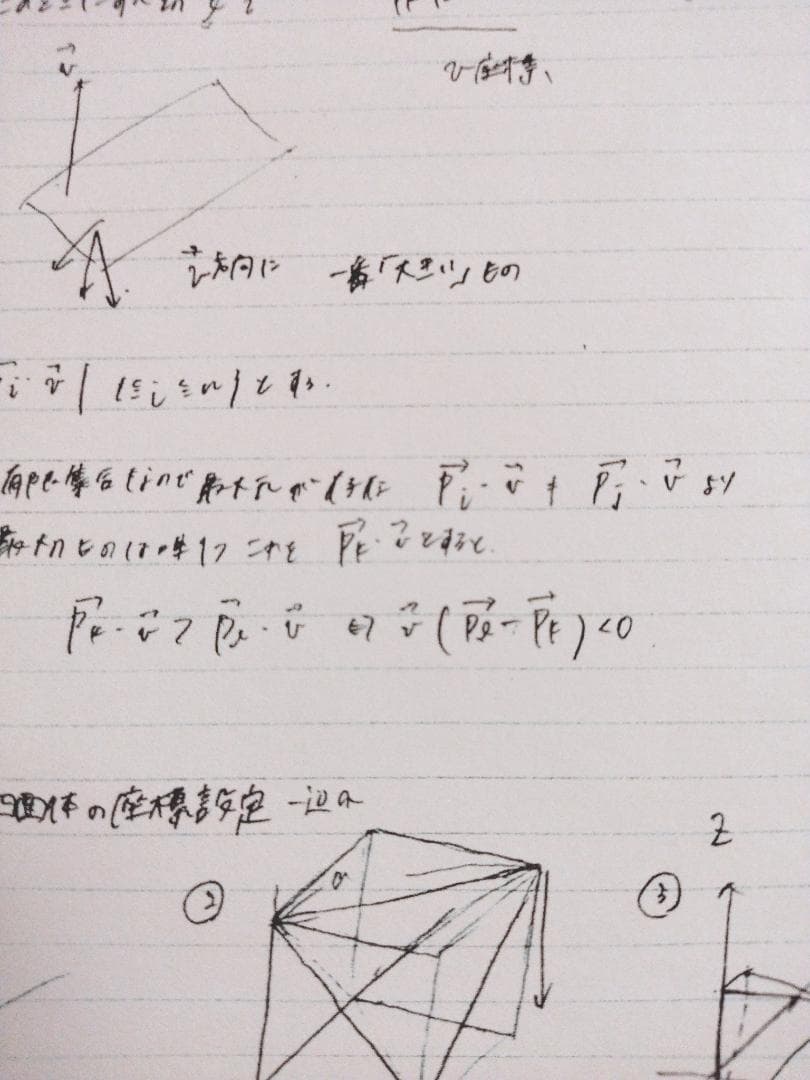 v⃗
v 座標、
v⃗方向に 一番「大きい」もの
P⃗i・v⃗ | 1≦i≦n } とする.
有限集合なので最大元が存在し P⃗i・v⃗ ≠ P⃗j・v⃗ より
最大のものは唯1つ これを P⃗k・v⃗ とすると.
P⃗k・v⃗ > P⃗l・v⃗ ⇔ v⃗(P⃗l - P⃗k) < 0
四面体の座標設定 一辺a
② a
③ Z